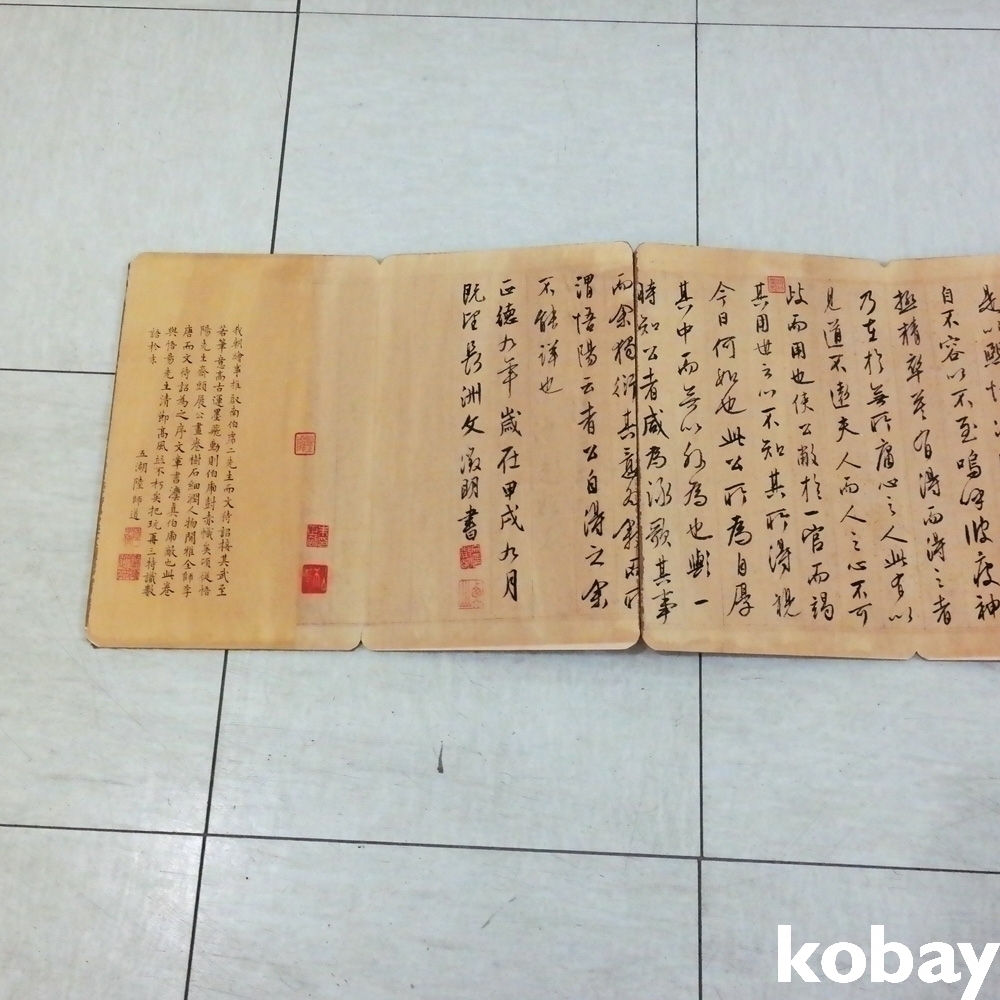 自不容以不至嗚呼彼疲神
極精卒莫有得而得之者
乃在於無所庸心之人此有以
見道不遠夫人而人之心不可
歧而用也使公敝於一官而竭
其用世之心不知其所得視
今日何如也此公所為自學
其中而無以外為也歟一
時知公者咸為詠歌其事
而余獨衍其意
謂悟陽云者公自得之余
不能詳也
正德九年歲在甲戌九月
既望長洲文徵明書
我朝繪事推
若筆意高古運墨飛動則伯虎
陽先生齋頭展公畫卷樹石細潤人物閒雅全師李
唐而文待詔為之序文章書法真伯虎敵也此卷
與悟陽先生清節高風並不朽矣把玩再三特識數
語於末
五湖陸師道
kobay